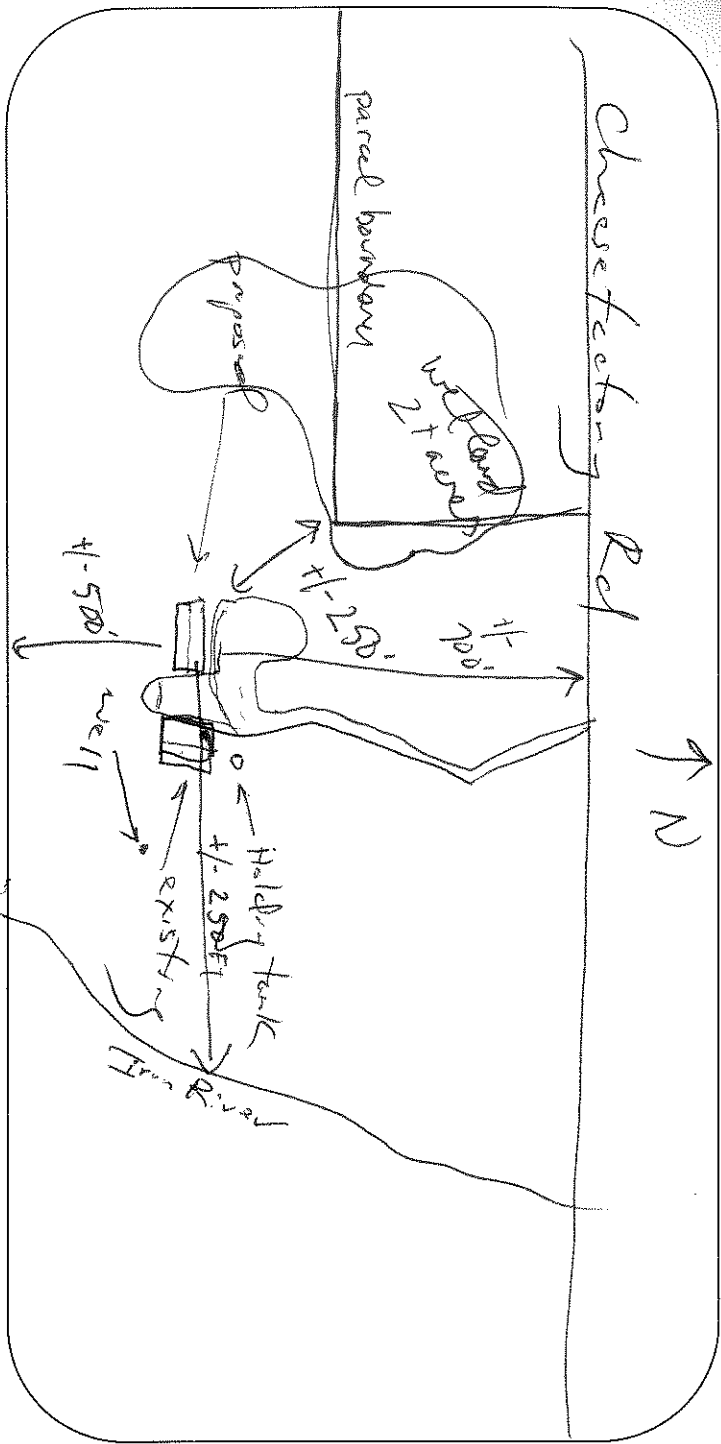 Cheesefactory Rd
N
parcel boundary
wetland
2+ acres
proposed
+/- 250'
+/-
700'
+/- 500'
well
existing
Holding tank
+/- 250 FT
Iron River